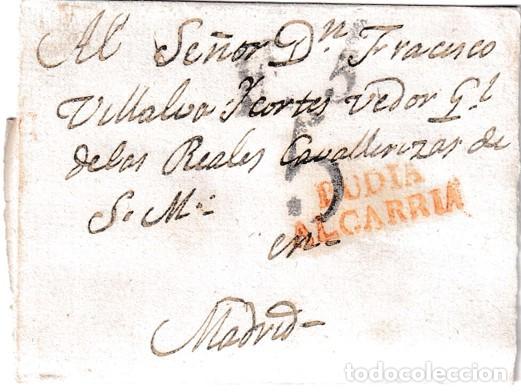 Al Señor Dn Fracisco
5
Villalva Ycortes Vedor Gl
de las Reales Cavallerizas de
S. M.
5
BUDIA
ALCARRIA
en
Madrid
todocoleccion.net